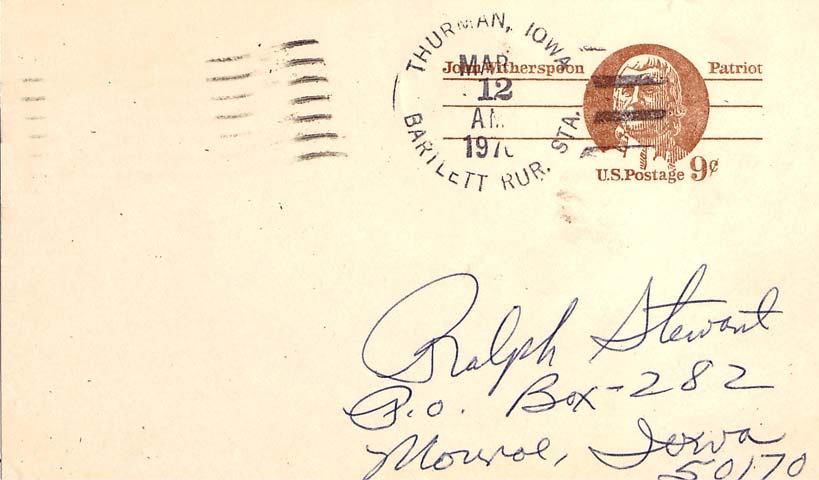 THURMAN, IOWA
MAR
12
AM
BARTLETT RUR. STA.
John Witherspoon Patriot
U.S. Postage 9¢
Ralph Stewart
P.O. Box-282
Monroe, Iowa
50170